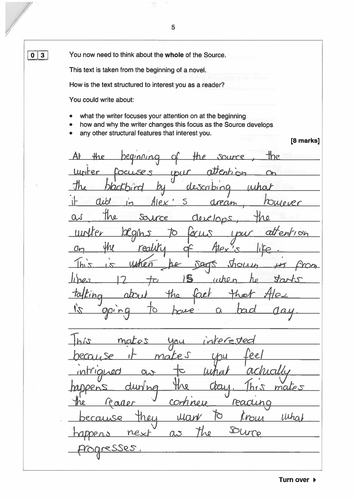 5
0 3
You now need to think about the whole of the Source.
This text is taken from the beginning of a novel.
How is the text structured to interest you as a reader?
You could write about:
• what the writer focuses your attention on at the beginning
• how and why the writer changes this focus as the Source develops
• any other structural features that interest you.
[8 marks]
At the beginning of the source, the
writer focuses your attention on
the blackbird by describing what
it did in Alex's dream, however
as the source develops, the
writer begins to focus your attention
on the reality of Alex's life.
This is when he says shown in from
lines 12 to 15 when he starts
talking about the fact that Alex
is going to have a bad day.
This makes you interested
because it makes you feel
intrigued as to what actually
happens during the day. This makes
the reader continue reading
because they want to know what
happens next as the source
progresses.
Turn over ►